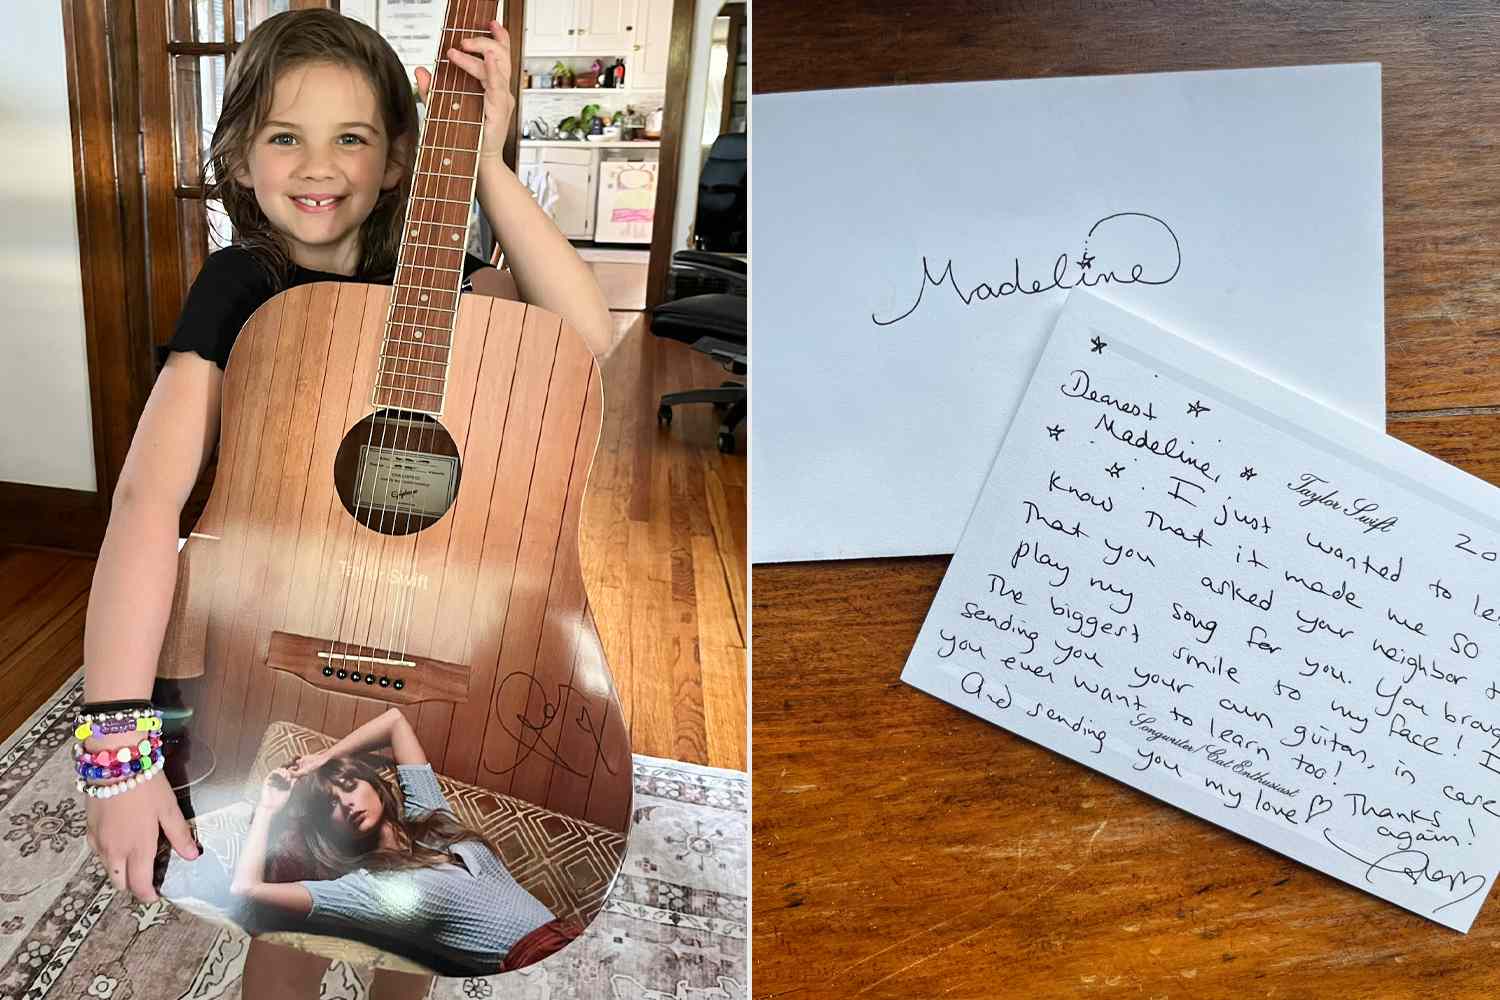 Epiphone
Taylor Swift
Madeline
Dearest
Madeline,
Taylor Swift
I just wanted to let
know that it made me so
that you asked your neighbor
play my song for you. You
the biggest smile to my face!
sending you your own guitar, in case
you ever want to learn too!
And sending you my love Thanks
again!
Songwriter/Cat Enthusiast